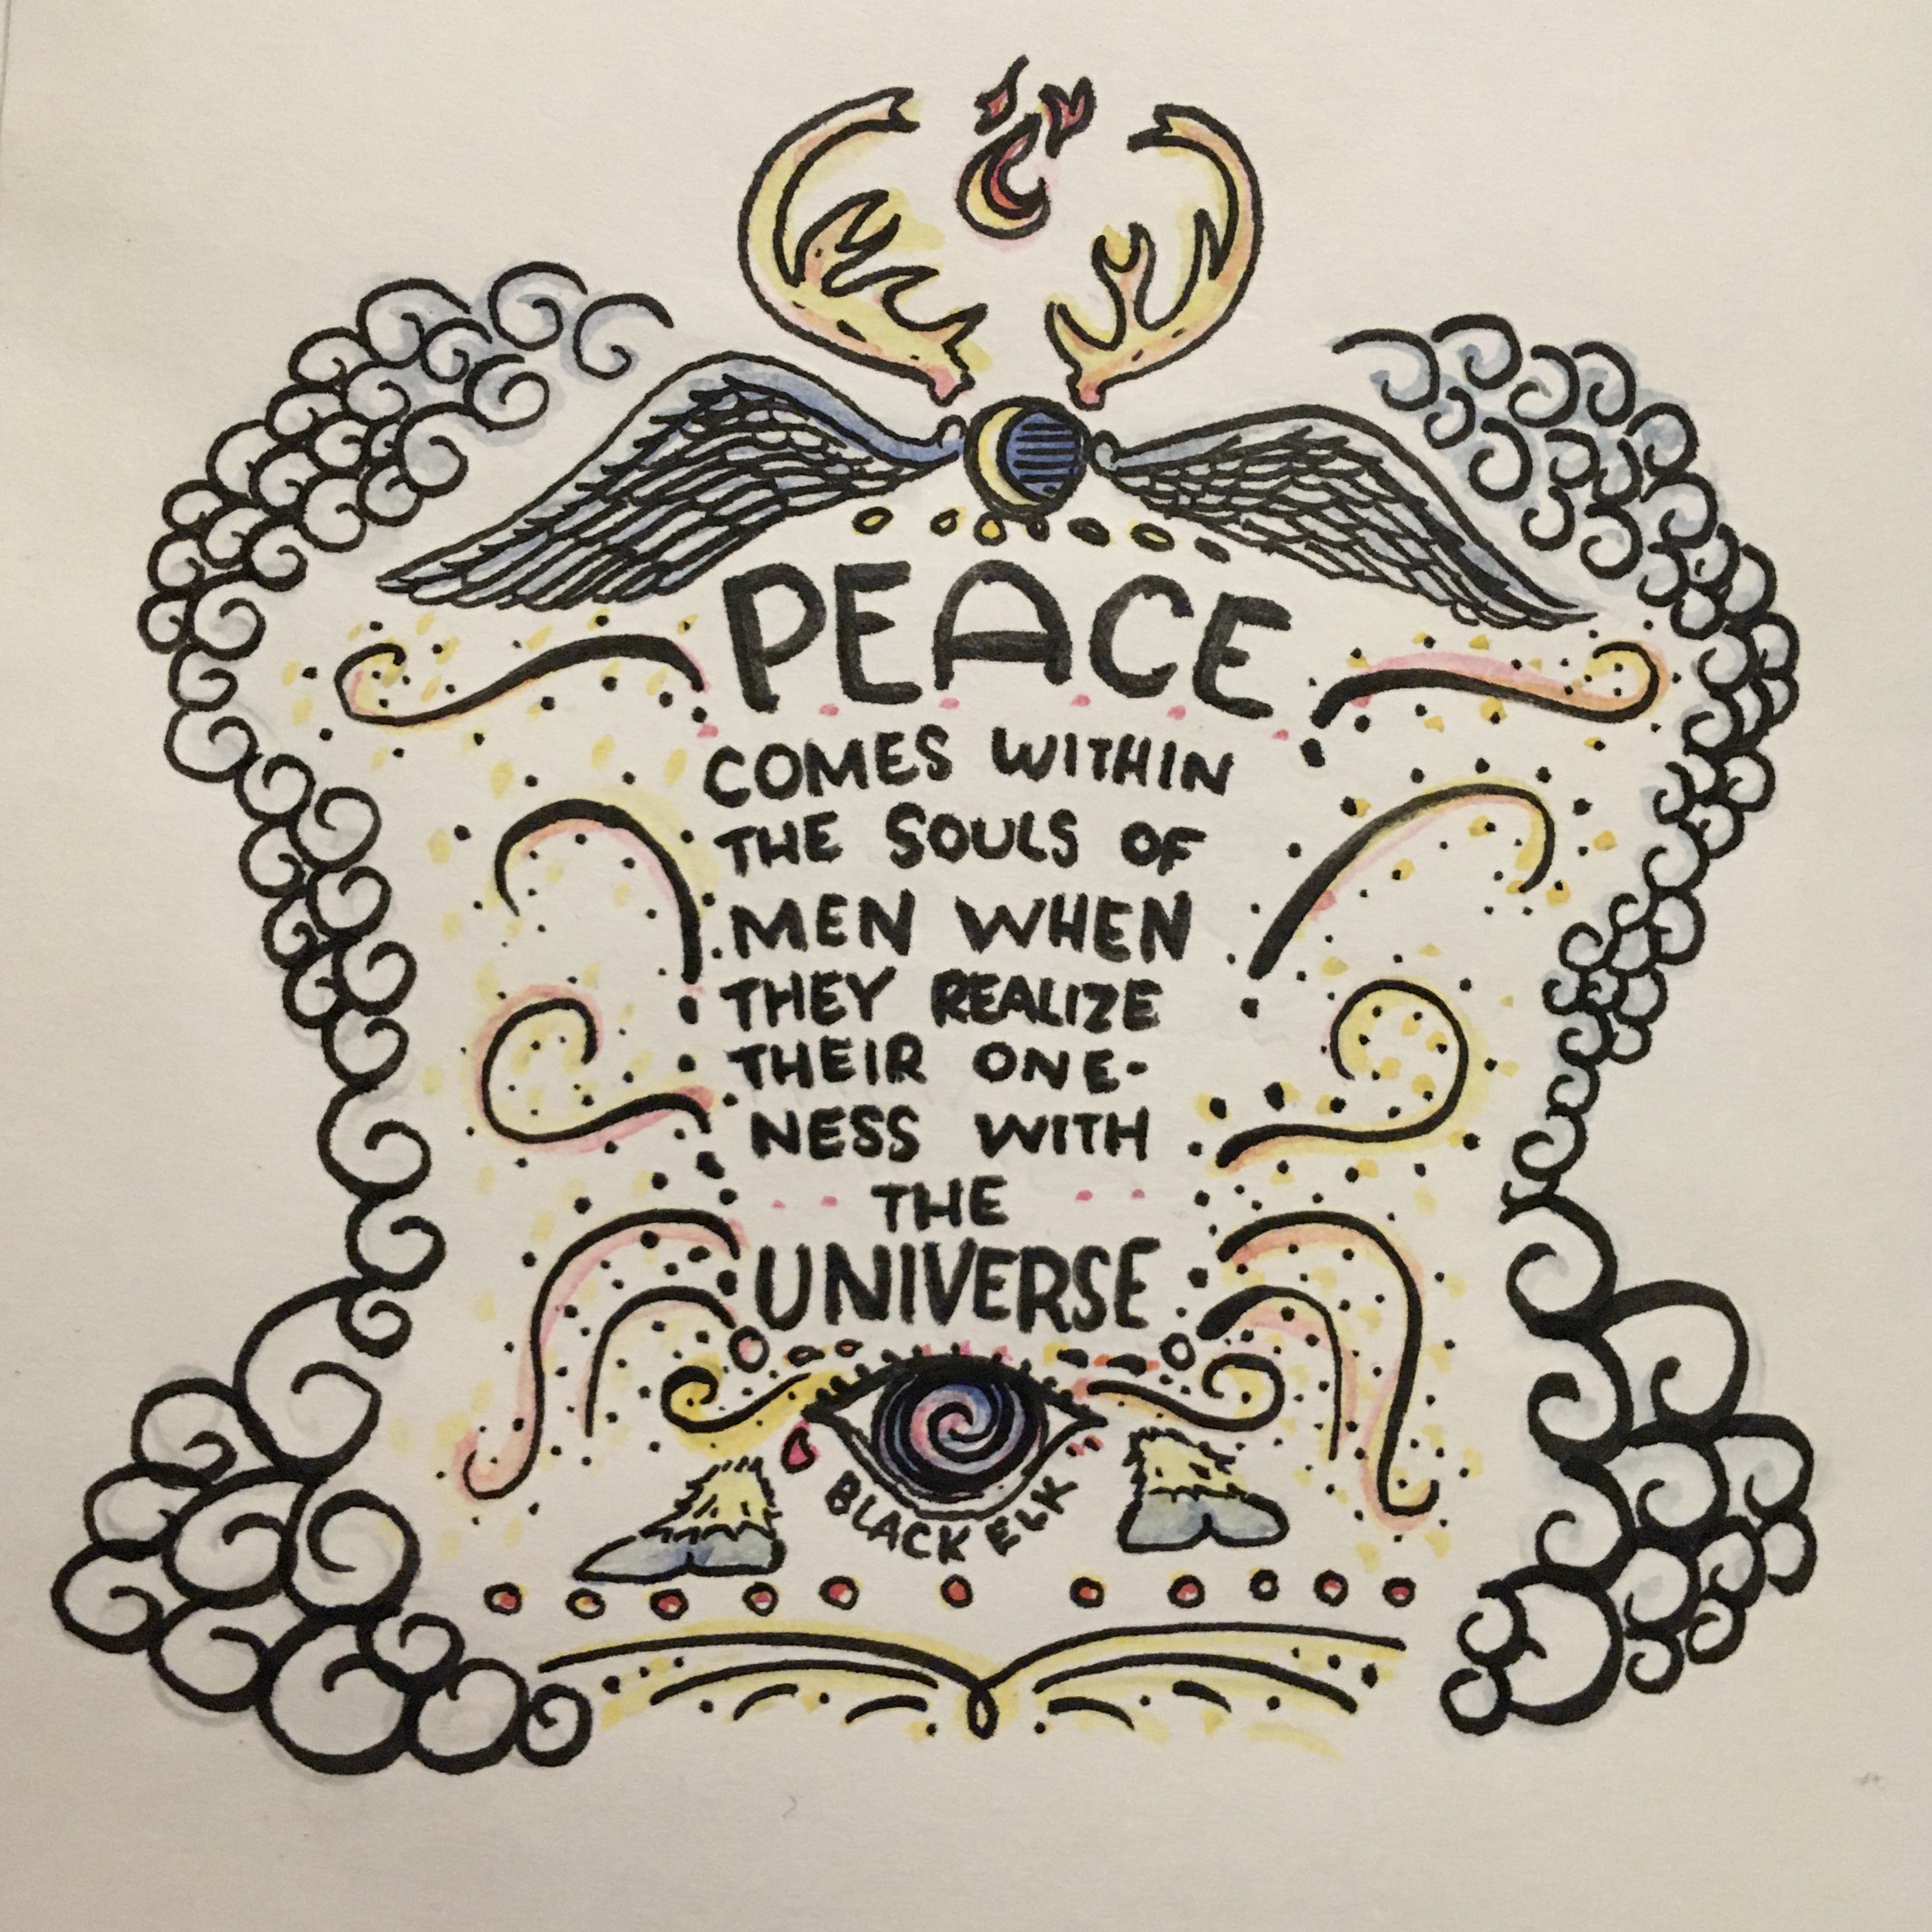 PEACE
COMES WITHIN
THE SOULS OF
MEN WHEN
THEY REALIZE
THEIR ONE-
NESS WITH
THE
UNIVERSE
BLACK ELK